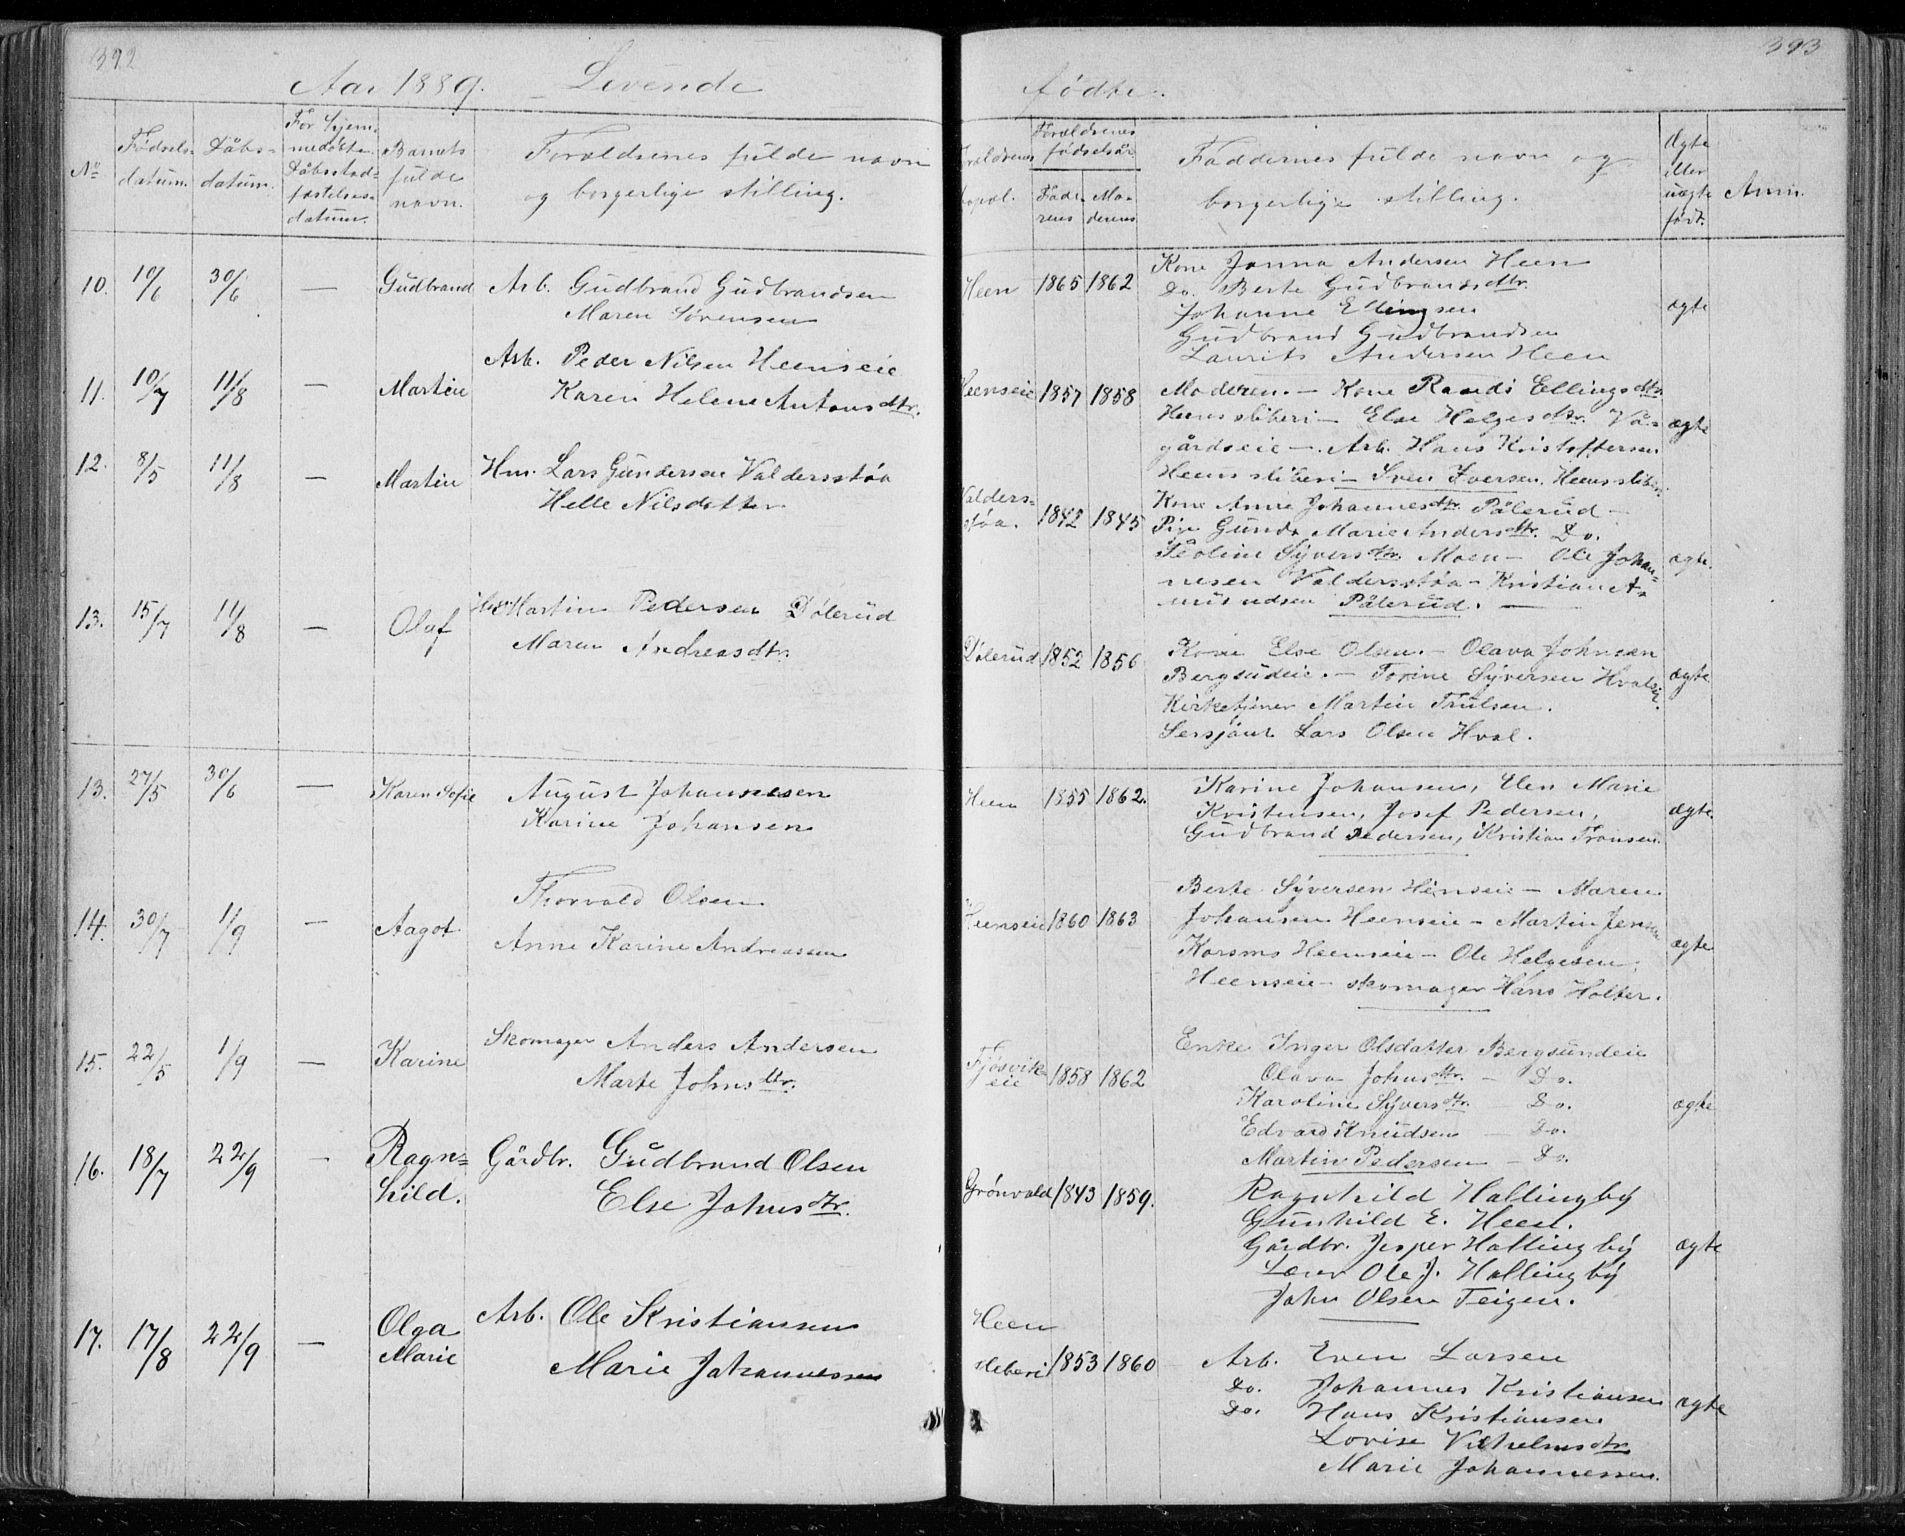 392
393
Aar 1889. Levende
fødte.
No
Fødsels-
datum.
Dåbs-
datum.
For hjem-
medøbte
Dåbsstad-
fæstelses-
datum.
Barnets
fulde
navn.
Forældrenes fulde navn
og borgerlige stilling.
Forældrenes
bopæl.
Forældrenes
fødselsår
Fade-
rens
Mo-
derens
Faddernes fulde navn og
borgerlige stilling.
Ægte
eller
uægte
født.
Anm.
10. 10/6 30/6 — Gudbrand Arb. Gudbrand Gudbrandsen
Maren Sørensen
Heen 1865 1862
Kone Janna Andersen Heen
Do. Berte Gudbrandsdtr.
Johanne Ellingsen
Gudbrand Gudbrandsen
Laurits Andersen Heen
ægte
11. 10/7 11/8 — Martin Arb. Peder Nilsen Heenseie
Karen Helene Antonsdtr.
Heenseie 1857 1858
Moderen. — Kone Randi Ellingsdtr.
Heens sliberi — Else Helgesdtr. Vå-
gårdseie — Arb. Hans Kristoffersen
Heens sliberi — Sven Iversen, Heens sliberi
ægte
12. 8/5 11/8 — Martin Hm. Lars Gundersen Valdersstøa
Helle Nilsdatter
Valders-
støa. 1842 1845
Kone Anne Johannesdtr. Pålerud —
Pige Gunda Marie Andersdtr. Do.
Syversdtr. Moen — Ole Johan-
nesen Valdersstøa — Kristian A-
mundsen Pålerud. —
ægte.
13. 15/7 11/8 — Olaf Martin Pedersen Dølerud
Maren Andreasdtr.
Dølerud 1852 1856
Kone Else Olsen. — Olava Johnsen
Bergsundeie. — Torine Syversen Hvalseie.
Kirketjener Martin Trulsen.
Sersjant Lars Olsen Hval.
ægte
13. 27/5 30/6 — Karen Sofie August Johannesen
Karine Johansen
Heen 1855 1862.
Karine Johansen, Elen Marie
Kristensen, Josef Pedersen,
Gudbrand Pedersen, Kristian Fransen.
ægte
14. 30/7 1/9 — Aagot Thorvald Olsen
Anne Karine Andreassen
Heenseie 1860 1863
Berte Syversen Henseie — Maren
Johansen Heenseie — Martin Jensen
Heenseie — Ole Helgesen,
Heenseie — skomager Hans Holter.
ægte
15. 22/5 1/9 — Karine Skomager Anders Andersen
Marte Johnsdtr.
Fjøsvik-
eie 1858 1862
Enke Inger Olsdatter Bergsundeie
Olava Johnsdtr. — Do.
Karoline Syversdtr. — Do.
Edvard Knudsen — Do.
Martin Pedersen — Do.
ægte
16. 18/7 22/9 — Ragn-
hild. Gårdbr. Gudbrand Olsen
Else Johnsdtr.
Grønvold 1843 1859.
Ragnhild Hallingby
Gunhild E. Heen.
Gårdbr. Jesper Hallingby
Lærer Ole J. Hallingby
John Olsen Teigen.
ægte
17. 17/8 22/9 — Olga
Marie Arb. Ole Kristiansen
Marie Johannessen
Heen
sliberi 1853 1860
Arb. Even Larsen
Do. Johannes Kristiansen
Do. Hans Kristiansen
Lovise Vilhelmsdtr.
Marie Johannessen.
ægte